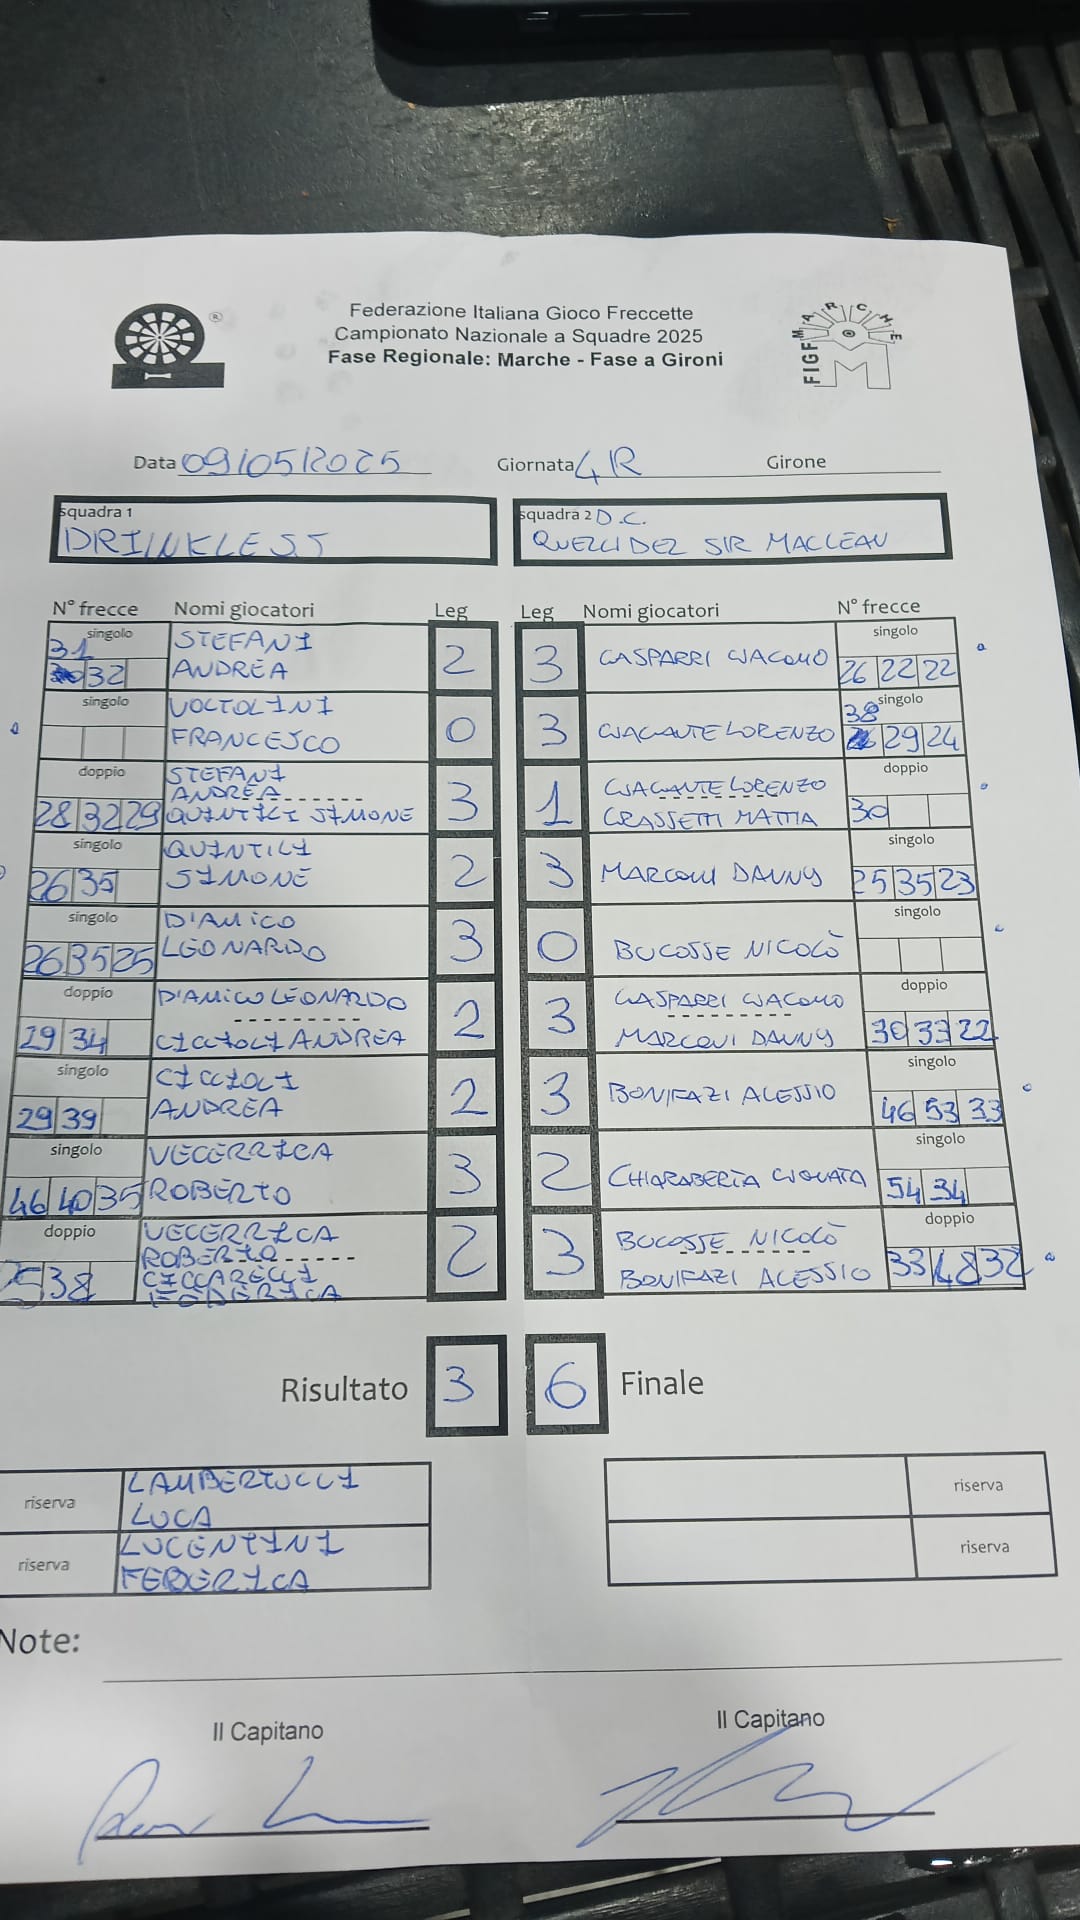 Federazione Italiana Gioco Freccette
Campionato Nazionale a Squadre 2025
Fase Regionale: Marche - Fase a Gironi
®
FIGF MARCHE
M
Data 09/05/2025 Giornata 4R Girone
squadra 1
DRINKLESS
squadra 2 D.C.
QUELLI DEL SIR MACLEAN
N° frecce Nomi giocatori Leg Leg Nomi giocatori N° frecce
singolo 31 32 STEFANI ANDREA 2 3 GASPARRI GIACOMO singolo 26 22 22
singolo VOLTOLINI FRANCESCO 0 3 GIAGANTE LORENZO singolo 38 29 24
doppio 28 32 29 STEFANI ANDREA QUINTILI SIMONE 3 1 GIAGANTE LORENZO GRASSETTI MATTIA doppio 30
singolo 26 35 QUINTILI SIMONE 2 3 MARCONI DANNY singolo 25 35 23
singolo 26 35 25 D'AMICO LEONARDO 3 0 BUCOSSE NICOLÒ singolo
doppio 29 34 D'AMICO LEONARDO CICCIOLI ANDREA 2 3 GASPARRI GIACOMO MARCONI DANNY doppio 30 33 22
singolo 29 39 CICCIOLI ANDREA 2 3 BONIFAZI ALESSIO singolo 46 53 33
singolo 46 40 35 VECERRICA ROBERTO 3 2 CHIARABERTA GIONATA singolo 54 34
doppio 38 VECERRICA ROBERTO CICCARELLI FEDERICA 2 3 BUCOSSE NICOLÒ BONIFAZI ALESSIO doppio 33 48 32
Risultato 3 6 Finale
riserva LAMBERTUCCI LUCA riserva
riserva LUCENTINI FEDERICA riserva
Note:
Il Capitano Il Capitano